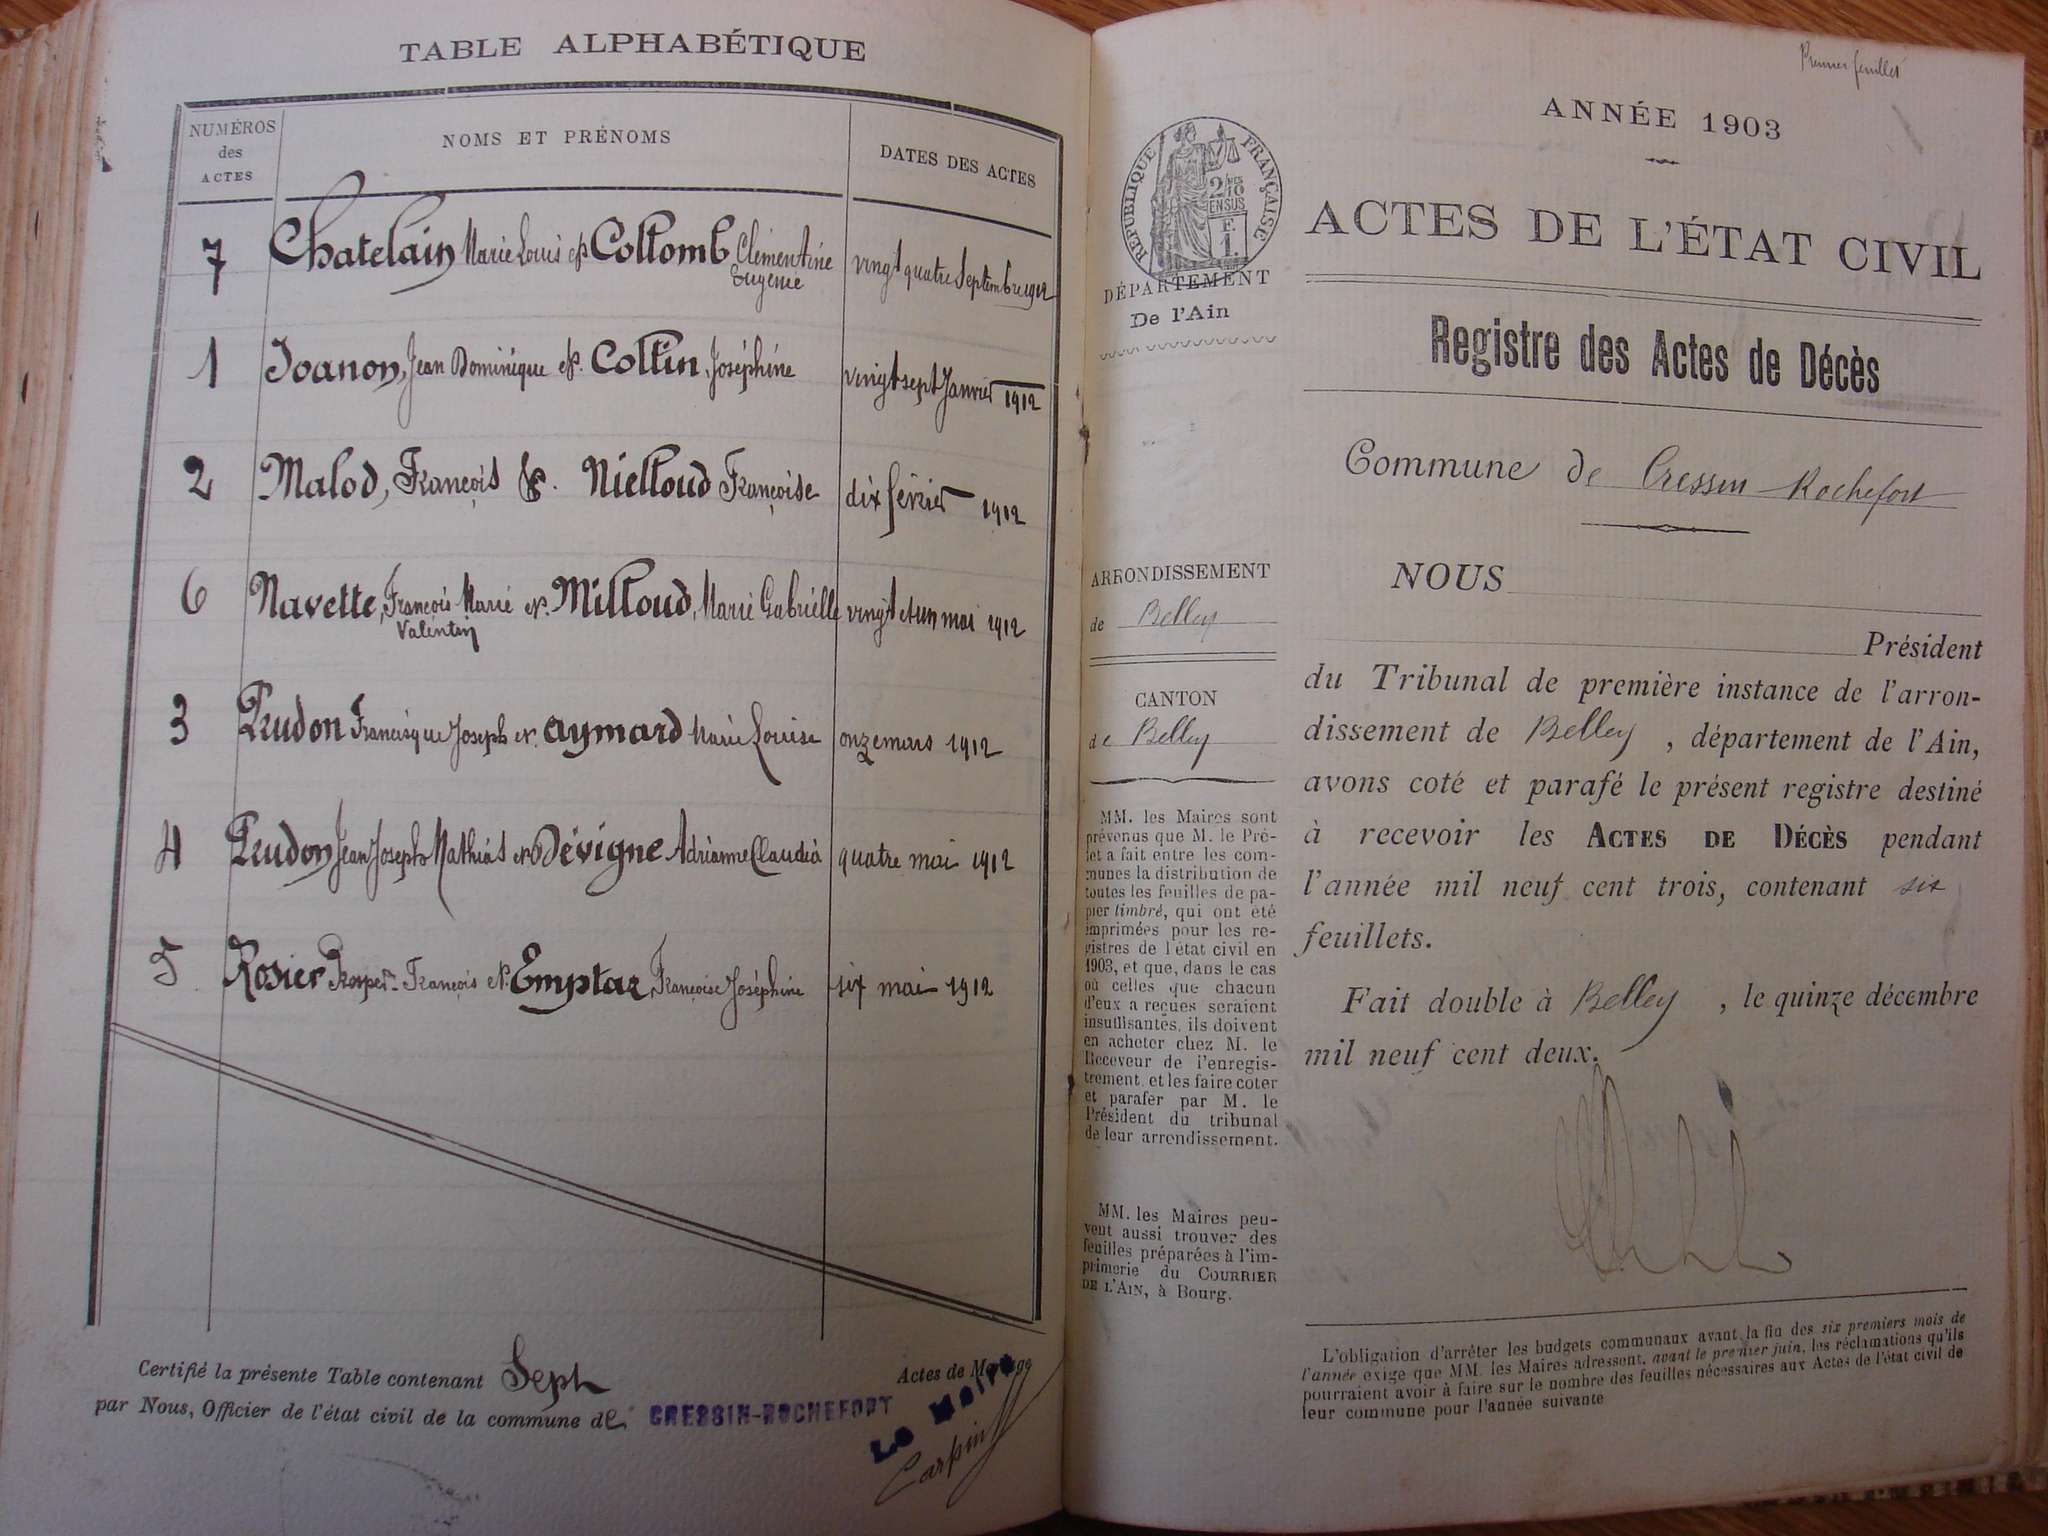 TABLE ALPHABÉTIQUE
NUMÉROS
des
ACTES
NOMS ET PRÉNOMS
DATES DES ACTES
7 Chatelain Marie Louis & Collomb Clémentine vingt quatre Septembre 1912
Eugénie
1 Joanon, Jean Dominique et. Collin Joséphine vingt sept Janvier 1912
2 Malod, François &. Nielloud Françoise dix février 1912
6 Navette, François Marie et. Milloud, Marie Gabrielle vingt et un mai 1912
Valentin
3 Prudon Francisque Joseph et. Aymard Marie Louise onze mars 1912
4 Prudon Jean Joseph Mathias et Dévigne Adrianne Claudia quatre mai 1912
5 Rosier Prosper François et. Emptaz, Françoise Joséphine six mai 1912
Certifié la présente Table contenant Sept Actes de Mariage
par Nous, Officier de l'état civil de la commune de CRESSIN-ROCHEFORT
Le Maire
Carpin
Premier feuillet
ANNÉE 1903
RÉPUBLIQUE FRANÇAISE
2/10
EN SUS
F.
1.
DÉPARTEMENT
De l'Ain
ACTES DE L'ÉTAT CIVIL
Registre des Actes de Décès
Commune de Cressin-Rochefort
ARRONDISSEMENT
de Belley
CANTON
de Belley
MM. les Maires sont
prévenus que M. le Pré-
fet a fait entre les com-
munes la distribution de
toutes les feuilles de pa-
pier timbré, qui ont été
imprimées pour les re-
gistres de l'état civil en
1903, et que, dans le cas
où celles que chacun
d'eux a reçues seraient
insuffisantes, ils doivent
en acheter chez M. le
Receveur de l'enregis-
trement et les faire coter
et parafer par M. le
Président du tribunal
de leur arrondissement.
MM. les Maires peu-
vent aussi trouver des
feuilles préparées à l'im-
primerie du COURRIER
DE L'AIN, à Bourg.
NOUS
Président
du Tribunal de première instance de l'arron-
dissement de Belley, département de l'Ain,
avons coté et parafé le présent registre destiné
à recevoir les ACTES DE DÉCÈS pendant
l'année mil neuf cent trois, contenant six
feuillets.
Fait double à Belley, le quinze décembre
mil neuf cent deux.
L'obligation d'arrêter les budgets communaux avant la fin des six premiers mois de
l'année exige que MM. les Maires adressent, avant le premier juin, les réclamations qu'ils
pourraient avoir à faire sur le nombre des feuilles nécessaires aux Actes de l'état civil de
leur commune pour l'année suivante